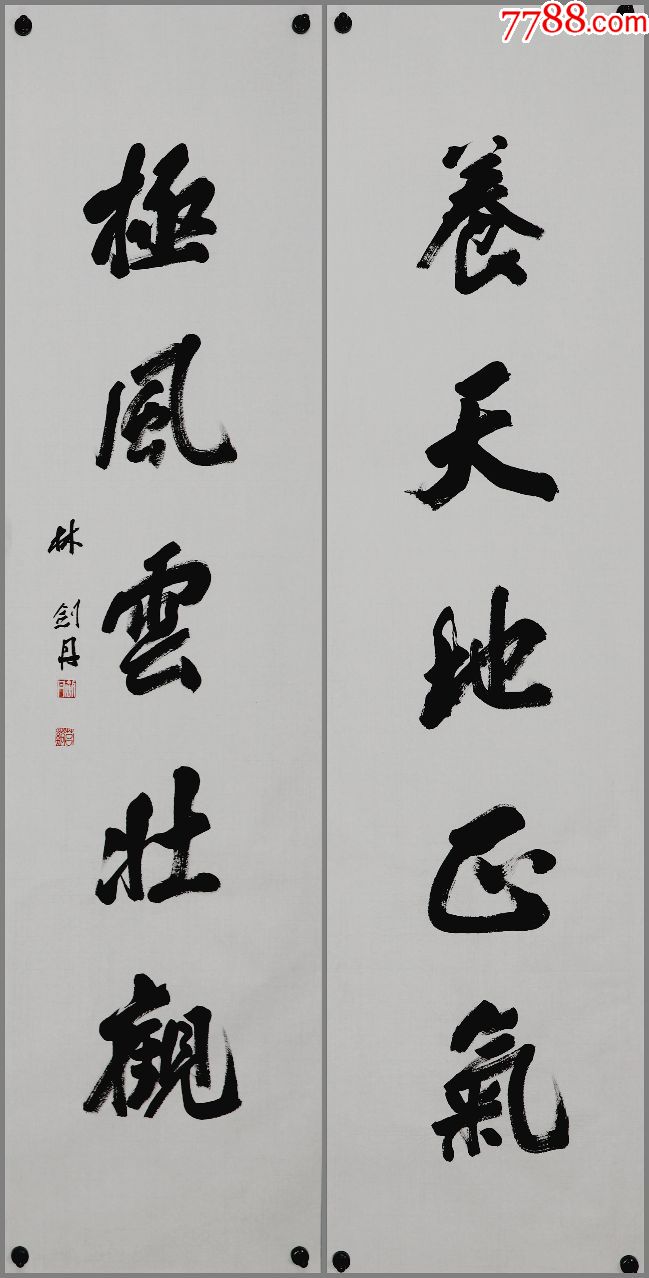 7788.com
養天地正氣
極風雲壯觀
林劍丹